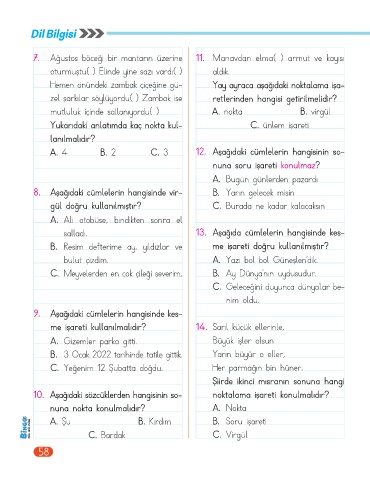 Dil Bilgisi
7. Ağustos böceği bir mantarın üzerine
oturmuştu( ) Elinde yine sazı vardı( )
Hemen önündeki zambak çiçeğine gü-
zel şarkılar söylüyordu( ) Zambak ise
mutluluk içinde sallanıyordu( )
Yukarıdaki anlatımda kaç nokta kul-
lanılmalıdır?
A. 4 B. 2 C. 3
8. Aşağıdaki cümlelerin hangisinde vir-
gül doğru kullanılmıştır?
A. Ali otobüse, bindikten sonra el
salladı.
B. Resim defterime ay, yıldızlar ve
bulut çizdim.
C. Meyvelerden en çok çileği severim,
9. Aşağıdaki cümlelerin hangisinde kes-
me işareti kullanılmalıdır?
A. Gizemler parka gitti.
B. 3 Ocak 2022 tarihinde tatile gittik.
C. Yeğenim 12 Şubatta doğdu.
10. Aşağıdaki sözcüklerden hangisinin so-
nuna nokta konulmalıdır?
A. Şu B. Kırdım
C. Bardak
58
11. Manavdan elma( ) armut ve kayısı
aldık.
Yay ayraca aşağıdaki noktalama işa-
retlerinden hangisi getirilmelidir?
A. nokta B. virgül
C. ünlem işareti
12. Aşağıdaki cümlelerin hangisinin so-
nuna soru işareti konulmaz?
A. Bugün günlerden pazardı
B. Yarın gelecek misin
C. Burada ne kadar kalacaksın
13. Aşağıda cümlelerin hangisinde kes-
me işareti doğru kullanılmıştır?
A. Yazı bol bol Güneşlen'dik.
B. Ay Dünya'nın uydusudur.
C. Geleceğini duyunca dünya'lar be-
nim oldu.
14. Sarıl küçük ellerinle,
Büyük işler olsun.
Yarın büyür o eller,
Her parmağın bin hüner.
Şiirde ikinci mısranın sonuna hangi
noktalama işareti konulmalıdır?
A. Nokta
B. Soru işareti
C. Virgül